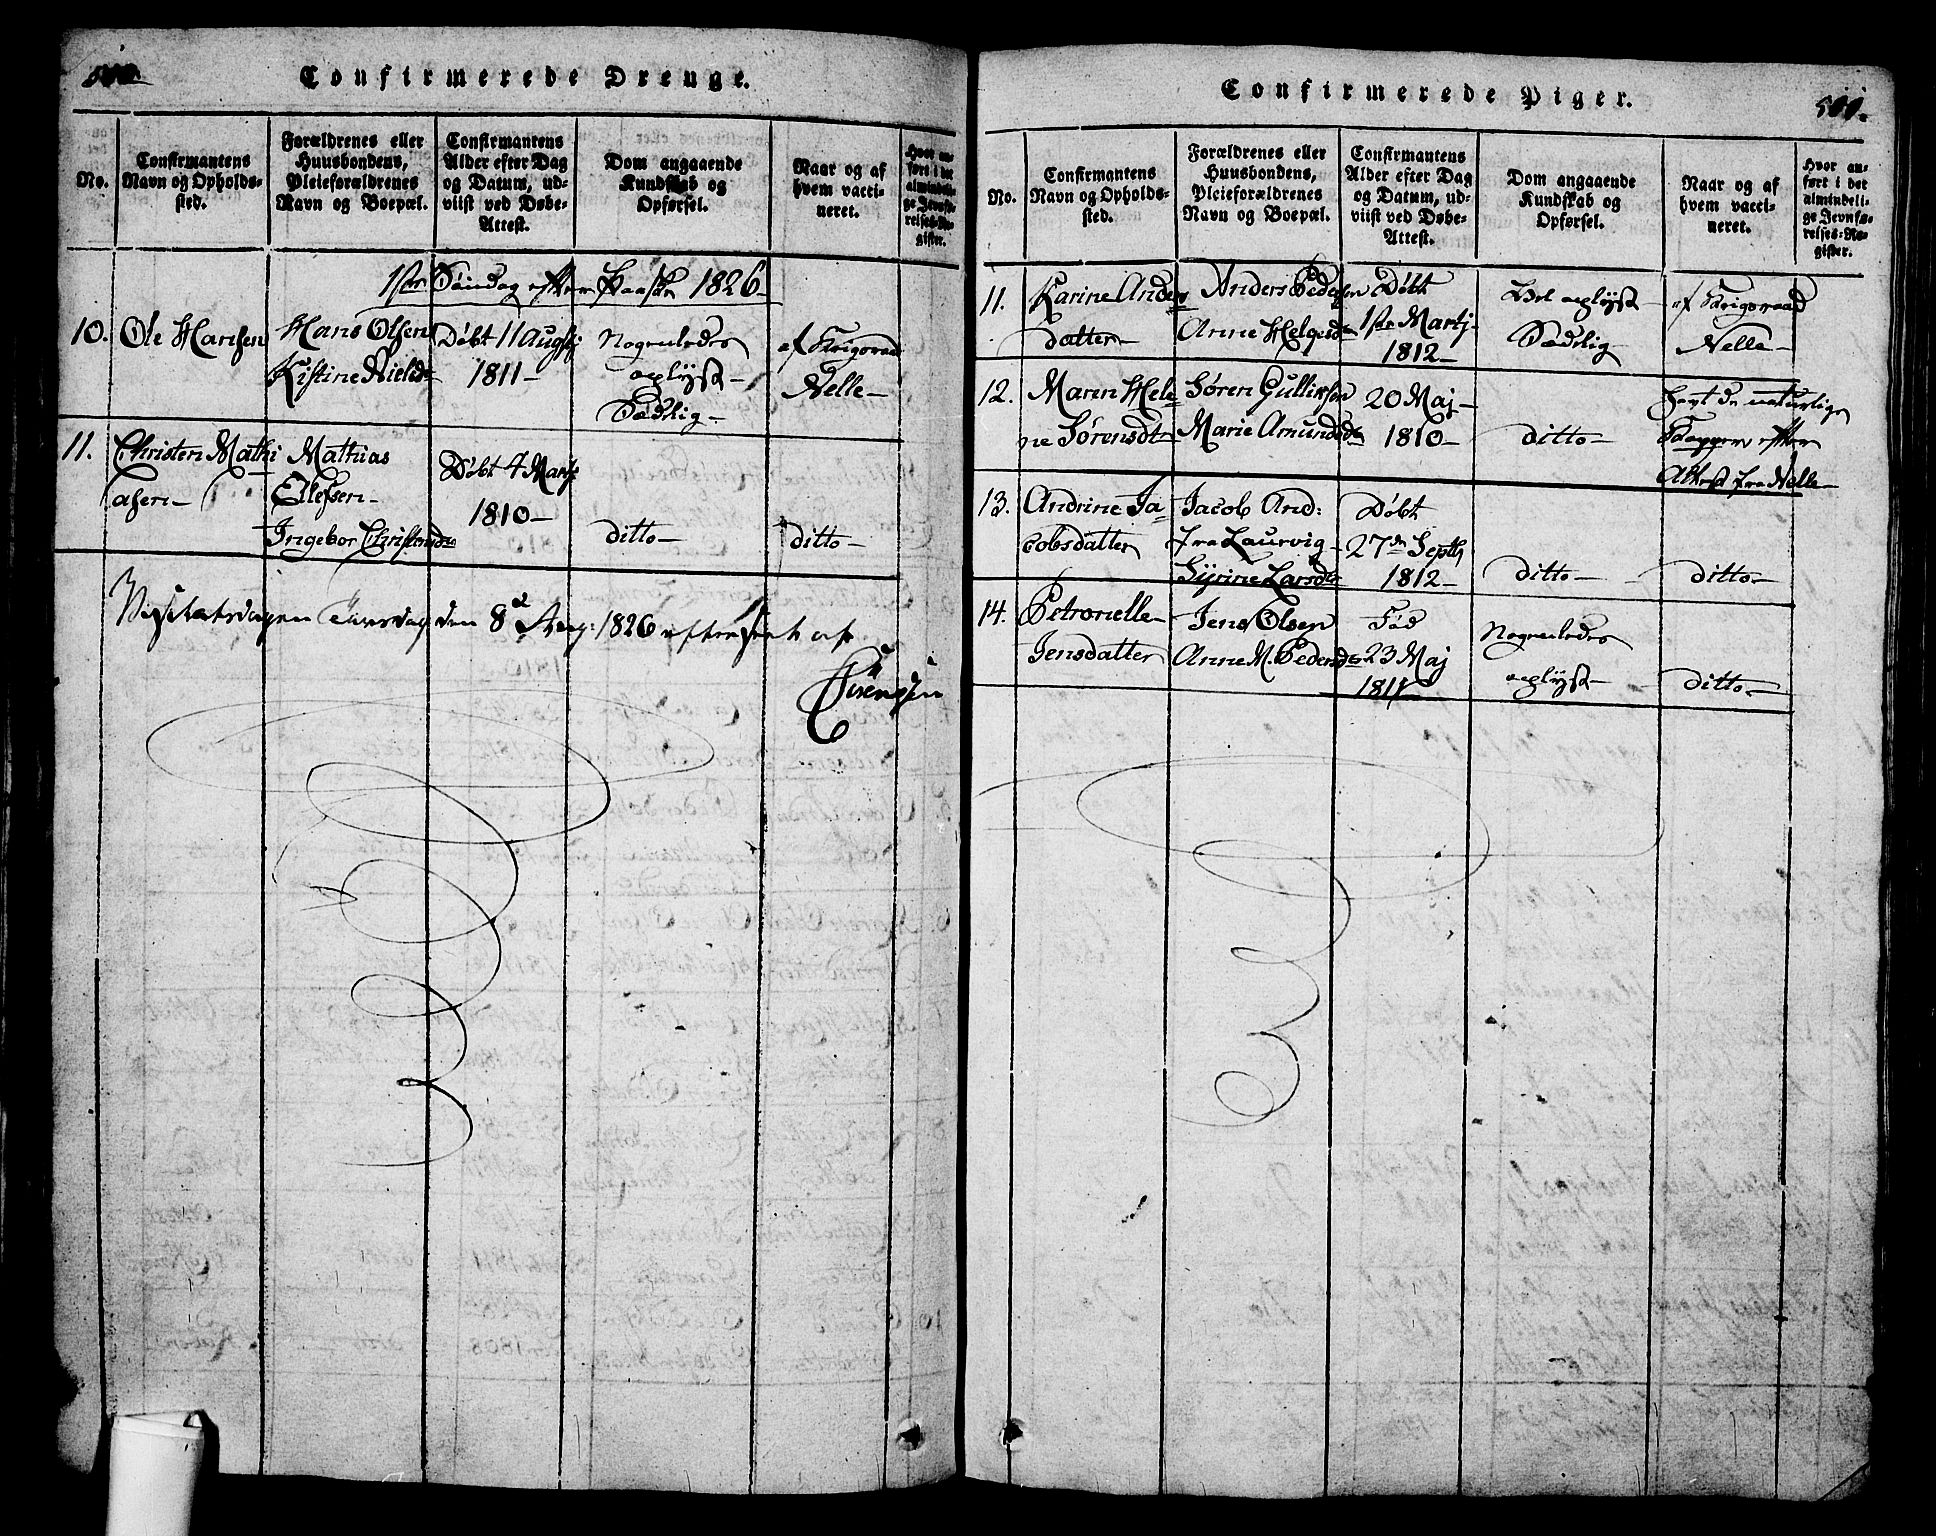 500.
Confirmerede Drenge.
No.
Confirmantens
Navn og Opholds-
sted.
Forældrenes eller
Huusbondens,
Pleieforældrenes
Navn og Boepæl.
Confirmantens
Alder efter Dag
og Datum, ud-
viist ved Døbe-
Attest.
Dom angaaende
Kundskab og
Opførsel.
Naar og af
hvem vacci-
neret.
Hvor an-
ført i det
almindeli-
ge Jevnfø-
relses-Re-
gister.
1ste Søndag efter Paaske 1826
10.
Ole Hansen
Hans Olsen
Kistine Nields
Døbt 11 Augst
1811
Nogenledes
oplyst
Sædelig
af Krigsraad
Nelle
11.
Christen Mathi
asen
Mathias
Ellefsen
Ingebor Christensdr
Døbt 4 Martj
1810
ditto
ditto
Visitatsdagen Tiirsdag den 8de Aug: 1826 efterseet af
Sørensen
501.
Confirmerede Piger.
No.
Confirmantens
Navn og Opholds-
sted.
Forældrenes eller
Huusbondens,
Pleieforældrenes
Navn og Boepæl.
Confirmantens
Alder efter Dag
og Datum, ud-
viist ved Døbe-
Attest.
Dom angaaende
Kundskab og
Opførsel.
Naar og af
hvem vacci-
neret.
Hvor an-
ført i det
almindeli-
ge Jevnfø-
relses-Re-
gister.
11.
Karine Anders
datter
Anders Pedersen
Anne Helgesdr
Døbt
1ste Martj
1812
Vel oplyst
Sædelig
af Krigsraad
Nelle
12.
Maren Hele
ne Sørensdtr
Søren Gulliksen
Marie Amundsdr
20 Maj
1810
ditto
havt de naturlige
Kopper efter
Attest fra Nelle
13.
Andrine Ja
cobsdatter
Jacob And:
fra Laurvig
Syrine Larsdr
Døbt
27de Septb
1812
ditto
ditto
14.
Petronelle
Jensdatter
Jens Olsen
Anne M. Pedersdr
Fød
23 Maj
1811
Nogenledes
oplyst
ditto